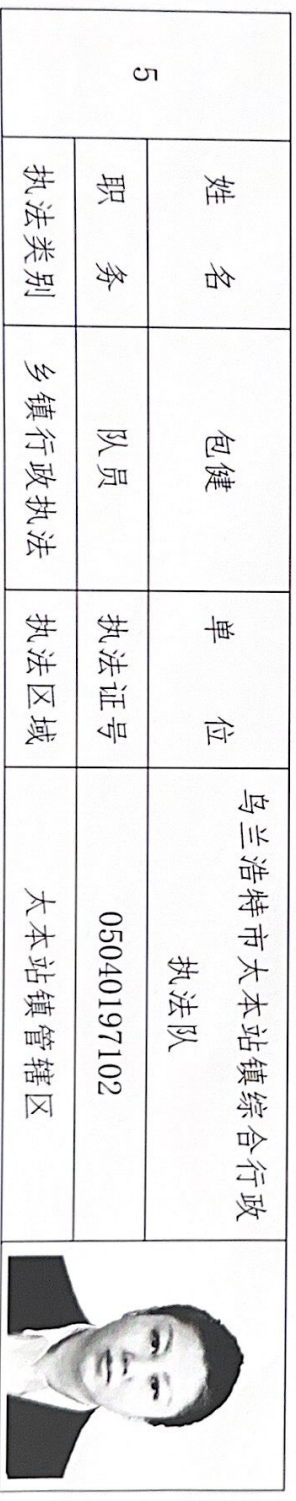 5
姓 名
包健
单 位
乌兰浩特市太本站镇综合行政
执法队
职 务
队员
执法证号
05040197102
执法类别
乡镇行政执法
执法区域
太本站镇管辖区